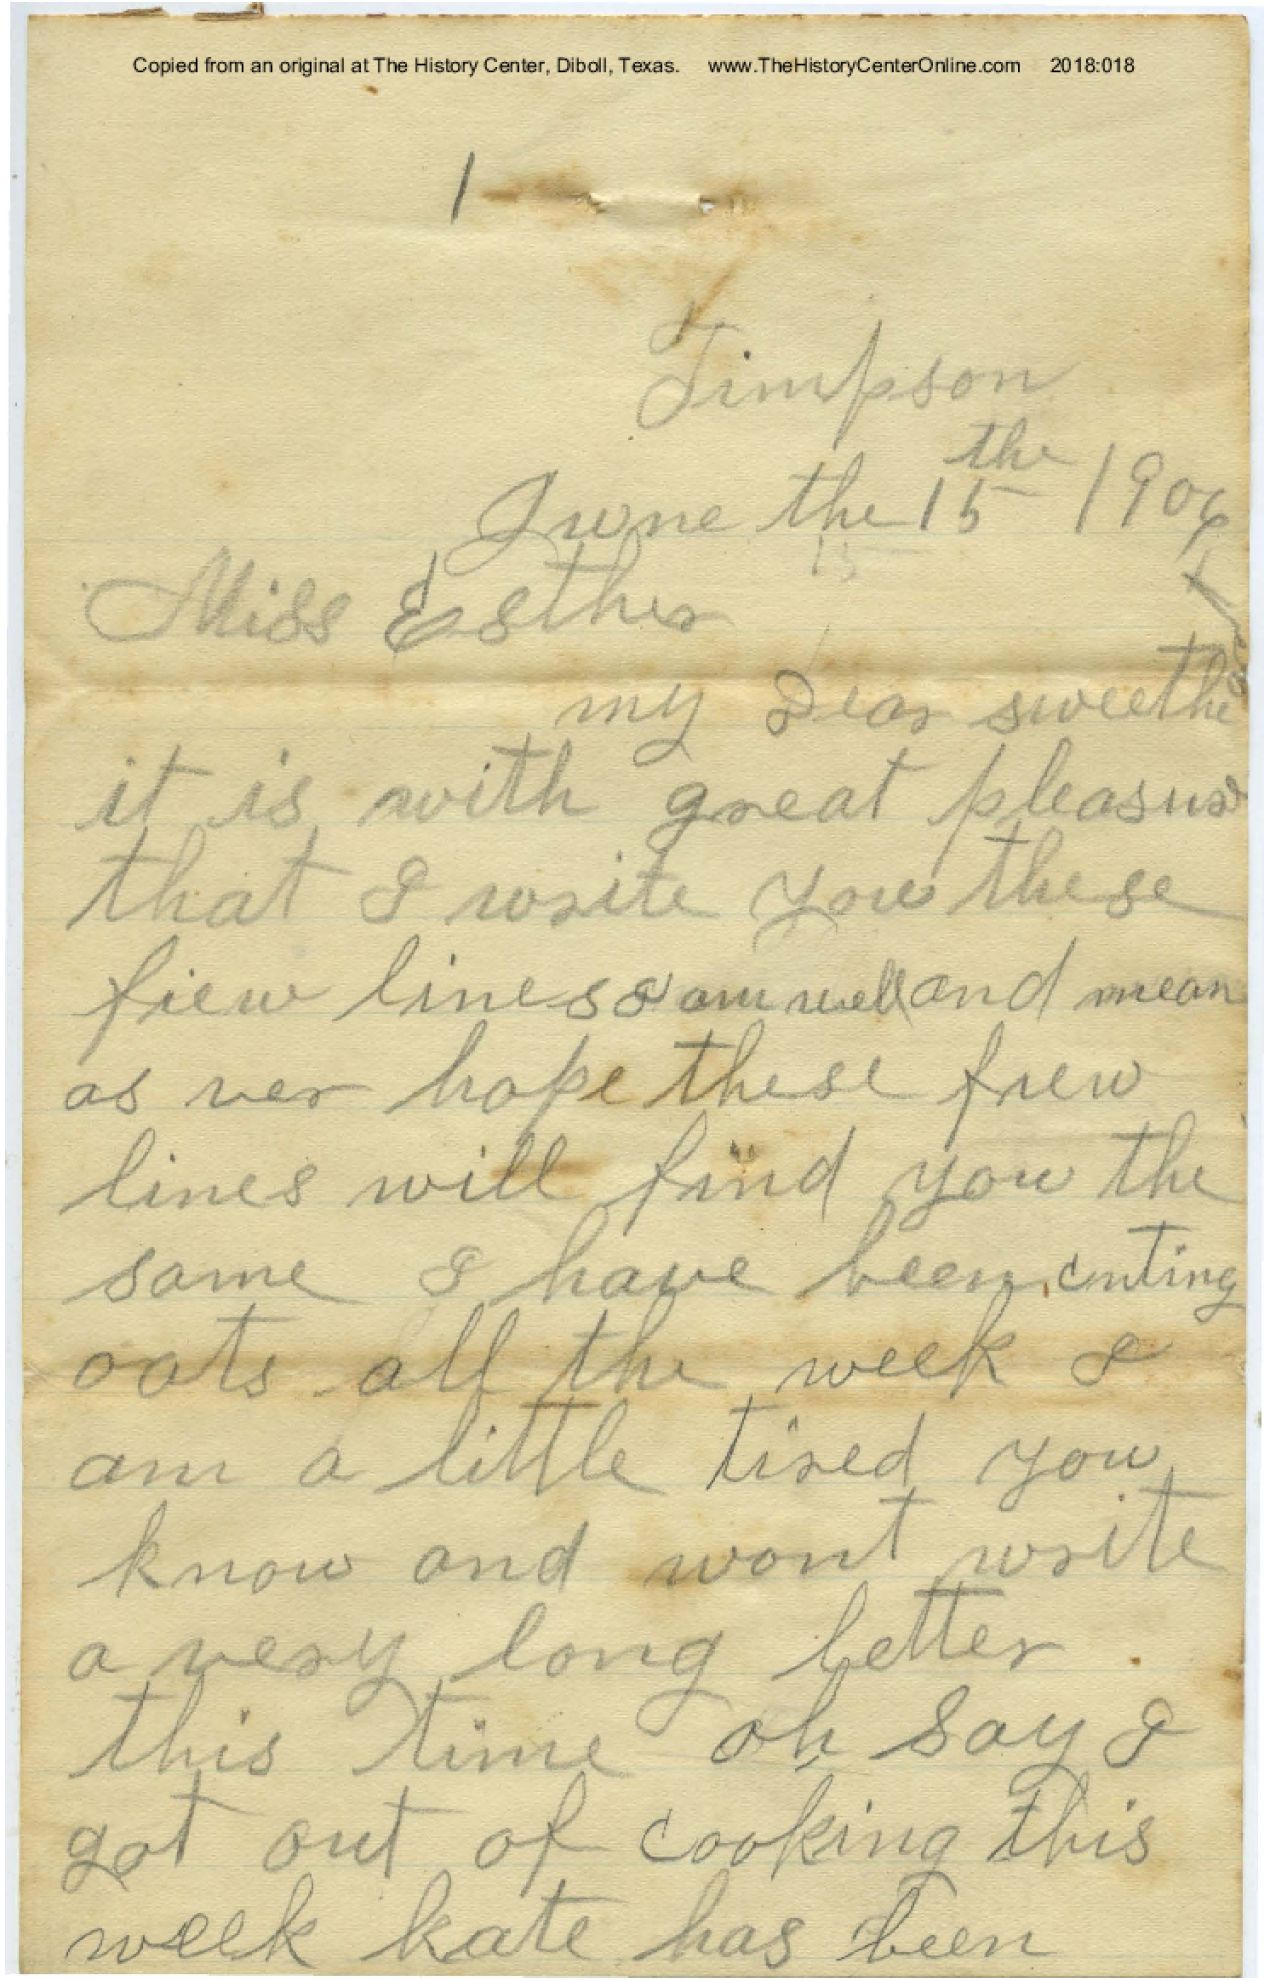 Copied from an original at The History Center, Diboll, Texas. www.TheHistoryCenterOnline.com 2018:018
1
Timpson
June the 15 the 1906
15
Miss Esther
my Dear sweethe
it is with great pleasure
that I write you these
fiew lines I am well and mean
as ver hope these friew
lines will find you the
same I have been cuting
oats all the week I
am a little tired you
know and wont write
a very long letter
this time oh say I
got out of cooking this
week kate has been